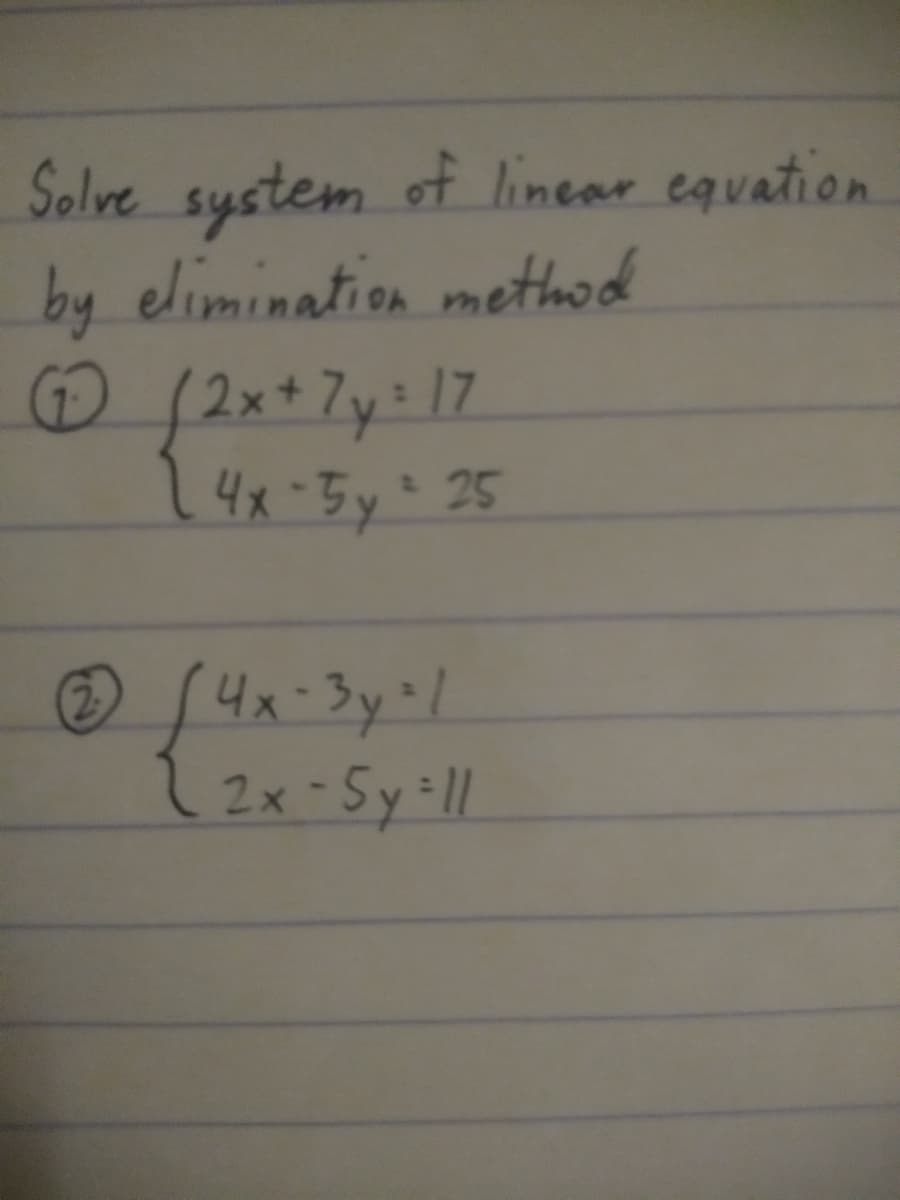 Solve system of linear equation
by elimination method
1. { 2x + 7y = 17
4x - 5y = 25
2. { 4x - 3y = 1
2x - 5y = 11